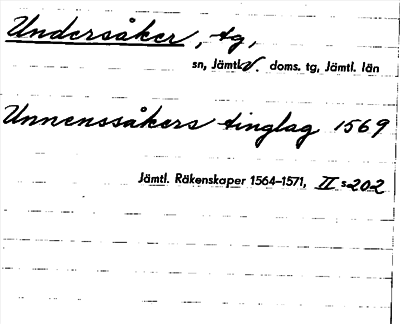 Undersåker, tg,
sn, Jämtl. V. doms. tg, Jämtl. län
Unnenssåkers tinglag 1569
Jämtl. Räkenskaper 1564–1571, II s 202